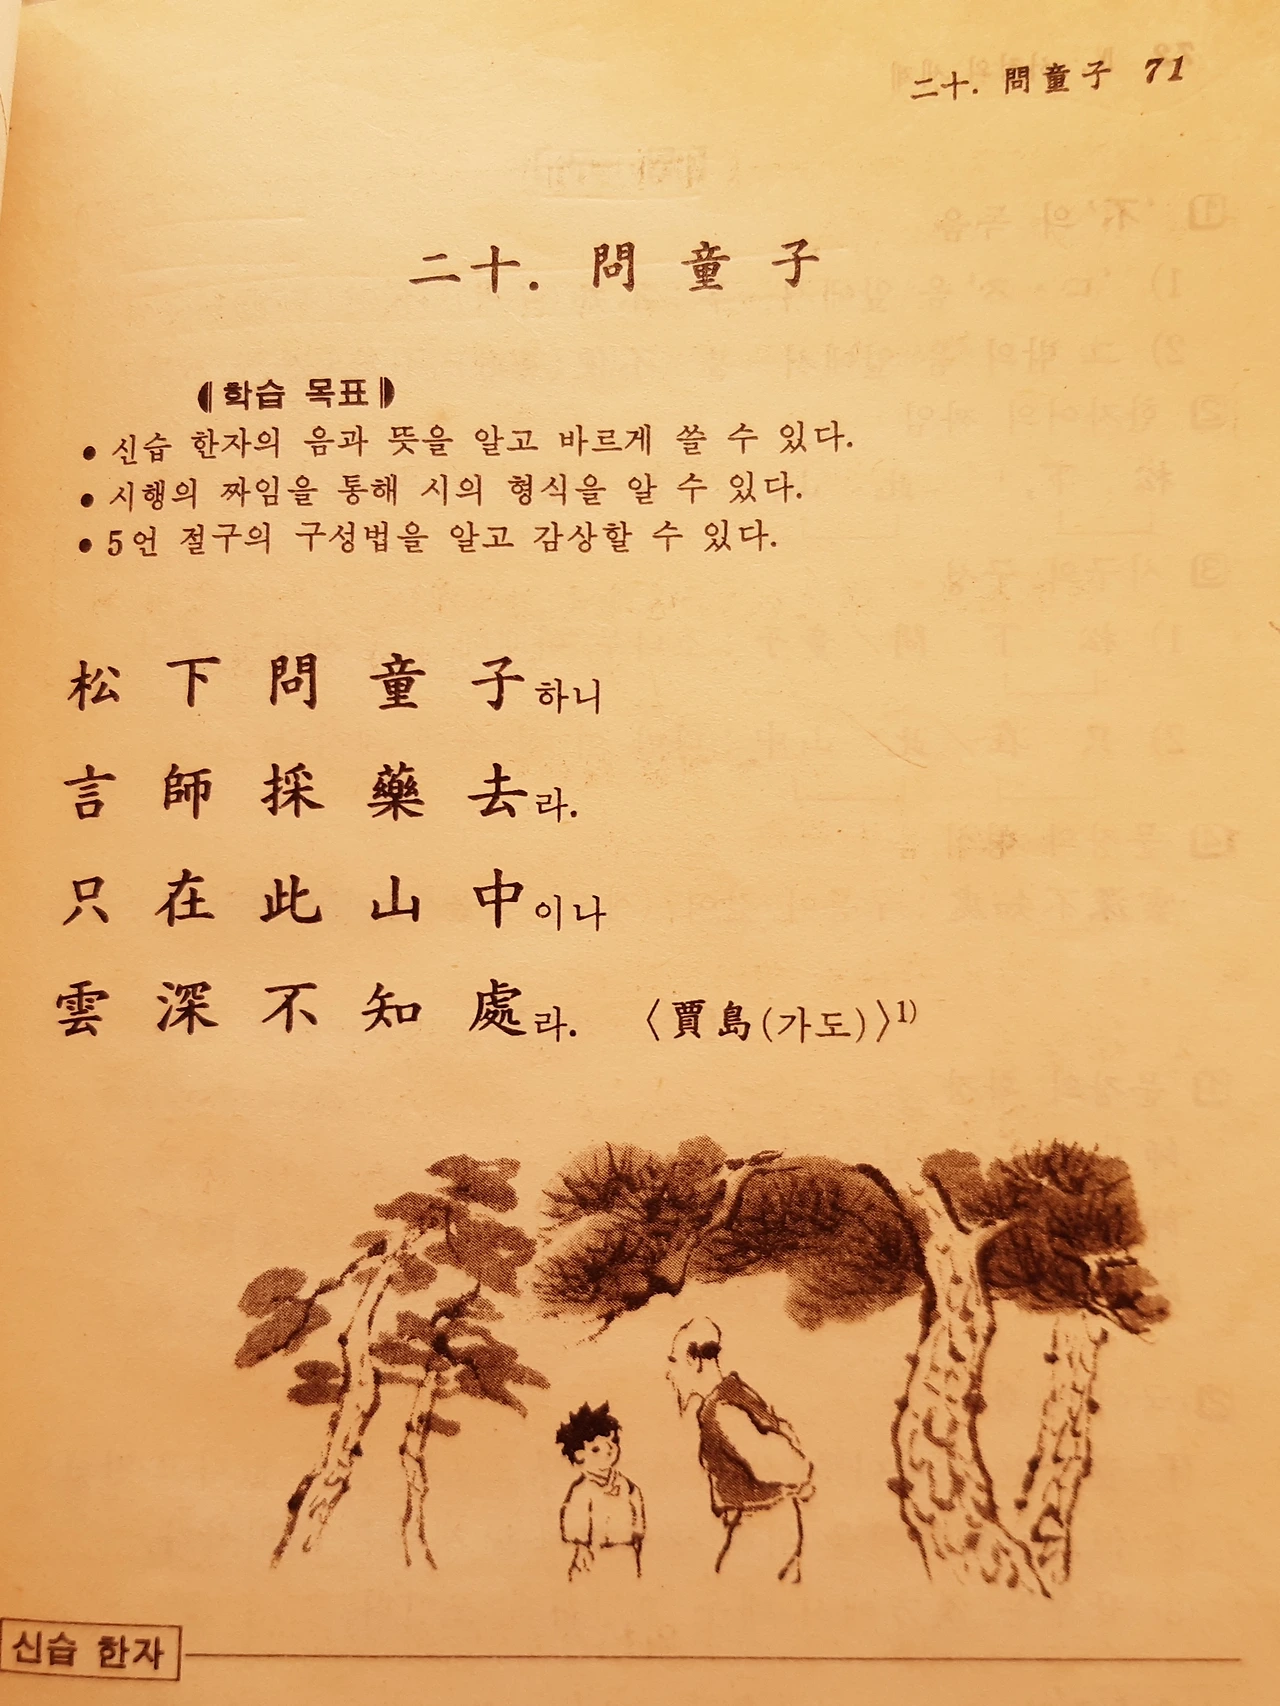 二十. 問童子 71
二十. 問童子
학습 목표
• 신습 한자의 음과 뜻을 알고 바르게 쓸 수 있다.
• 시행의 짜임을 통해 시의 형식을 알 수 있다.
• 5언 절구의 구성법을 알고 감상할 수 있다.
松下問童子하니
言師採藥去라.
只在此山中이나
雲深不知處라. 〈賈島(가도)〉1)
신습 한자